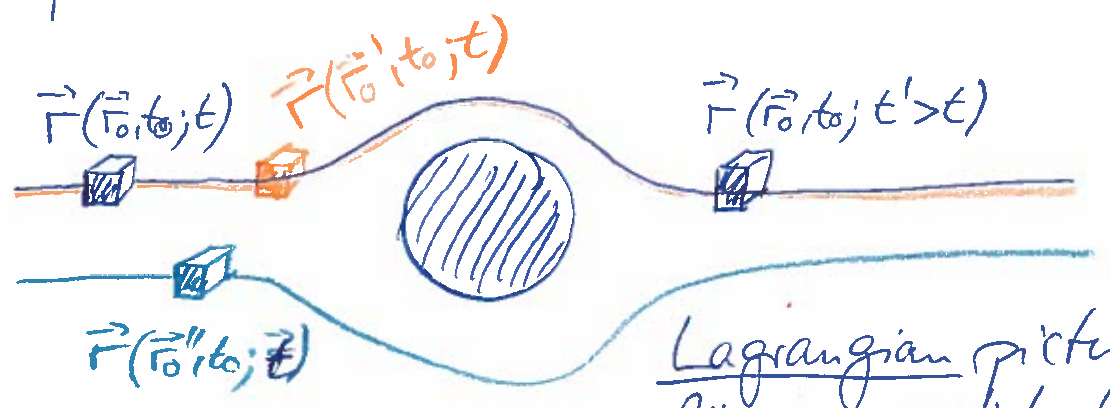 r⃗(r⃗₀,t₀;t)
r⃗(r⃗₀',t₀;t)
r⃗(r⃗₀,t₀; t'>t)
r⃗(r⃗₀'',t₀;t)
Lagrangian